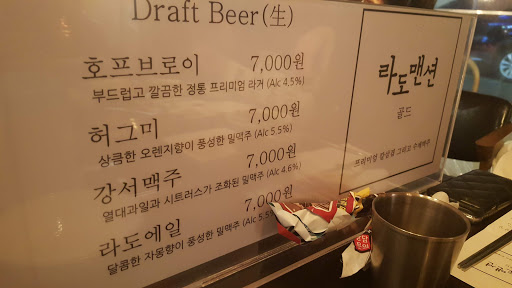 Draft Beer(生)
호프브로이 7,000원
부드럽고 깔끔한 정통 프리미엄 라거 (Alc 4.5%)
허그미 7,000원
상큼한 오렌지향이 풍성한 밀맥주 (Alc 5.5%)
강서맥주 7,000원
열대과일과 시트러스가 조화된 밀맥주 (Alc 4.6%)
라도에일 7,000원
달콤한 자몽향이 풍성한 밀맥주 (Alc 5.5%
라도맨션
골드
프리미엄 한상겹 그리고 수제맥주